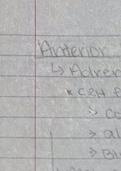 Anterior
↳ Adren
* CRH
> Co
> al
> Bl